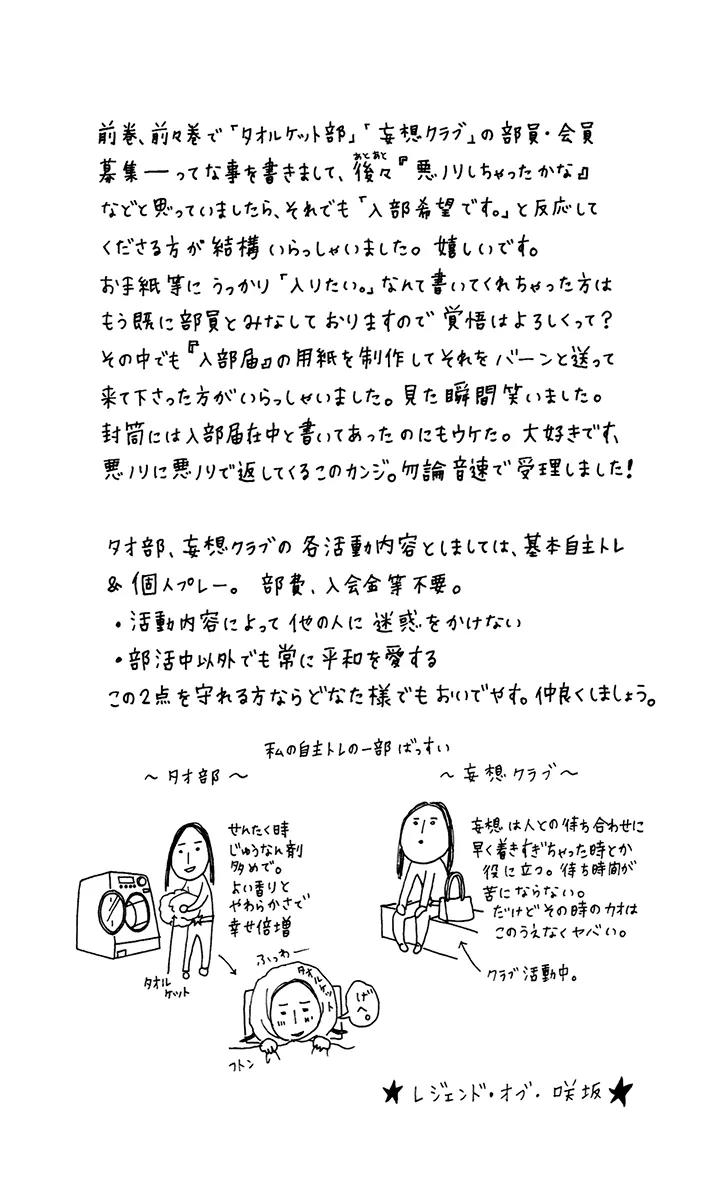 前巻、前々巻で「タオルケット部」「妄想クラブ」の部員・会員
募集――ってな事を書きまして、後々『悪ノリしちゃったかな』
あとあと
などと思っていましたら、それでも「入部希望です。」と反応して
くださる方が結構いらっしゃいました。嬉しいです。
お手紙等にうっかり「入りたい。」なんて書いてくれちゃった方は
もう既に部員とみなしておりますので覚悟はよろしくって?
その中でも『入部届』の用紙を制作してそれをバーンと送って
来て下さった方がいらっしゃいました。見た瞬間笑いました。
封筒には入部届在中と書いてあったのにもウケた。大好きです、
悪ノリに悪ノリで返してくるこのカンジ。勿論音速で受理しました!
タオ部、妄想クラブの各活動内容としましては、基本自主トレ
& 個人プレー。 部費、入会金等不要。
・活動内容によって他の人に迷惑をかけない
・部活中以外でも常に平和を愛する
この2点を守れる方ならどなた様でもおいでやす。仲良くしましょう。
私の自主トレの一部ばっすい
~ タオ部 ~
せんたく時
じゅうなん剤
多めで。
よい香りと
やわらかさで
幸せ倍増
タオル
ケット
ふっわー
タオルケット
げへ。
フトン
~ 妄想クラブ ~
妄想は人との待ち合わせに
早く着きすぎちゃった時とか
役に立つ。待ち時間が
苦にならない。
だけどその時のカオは
このうえなくヤバい。
クラブ活動中。
★ レジェンド・オブ・咲坂 ★